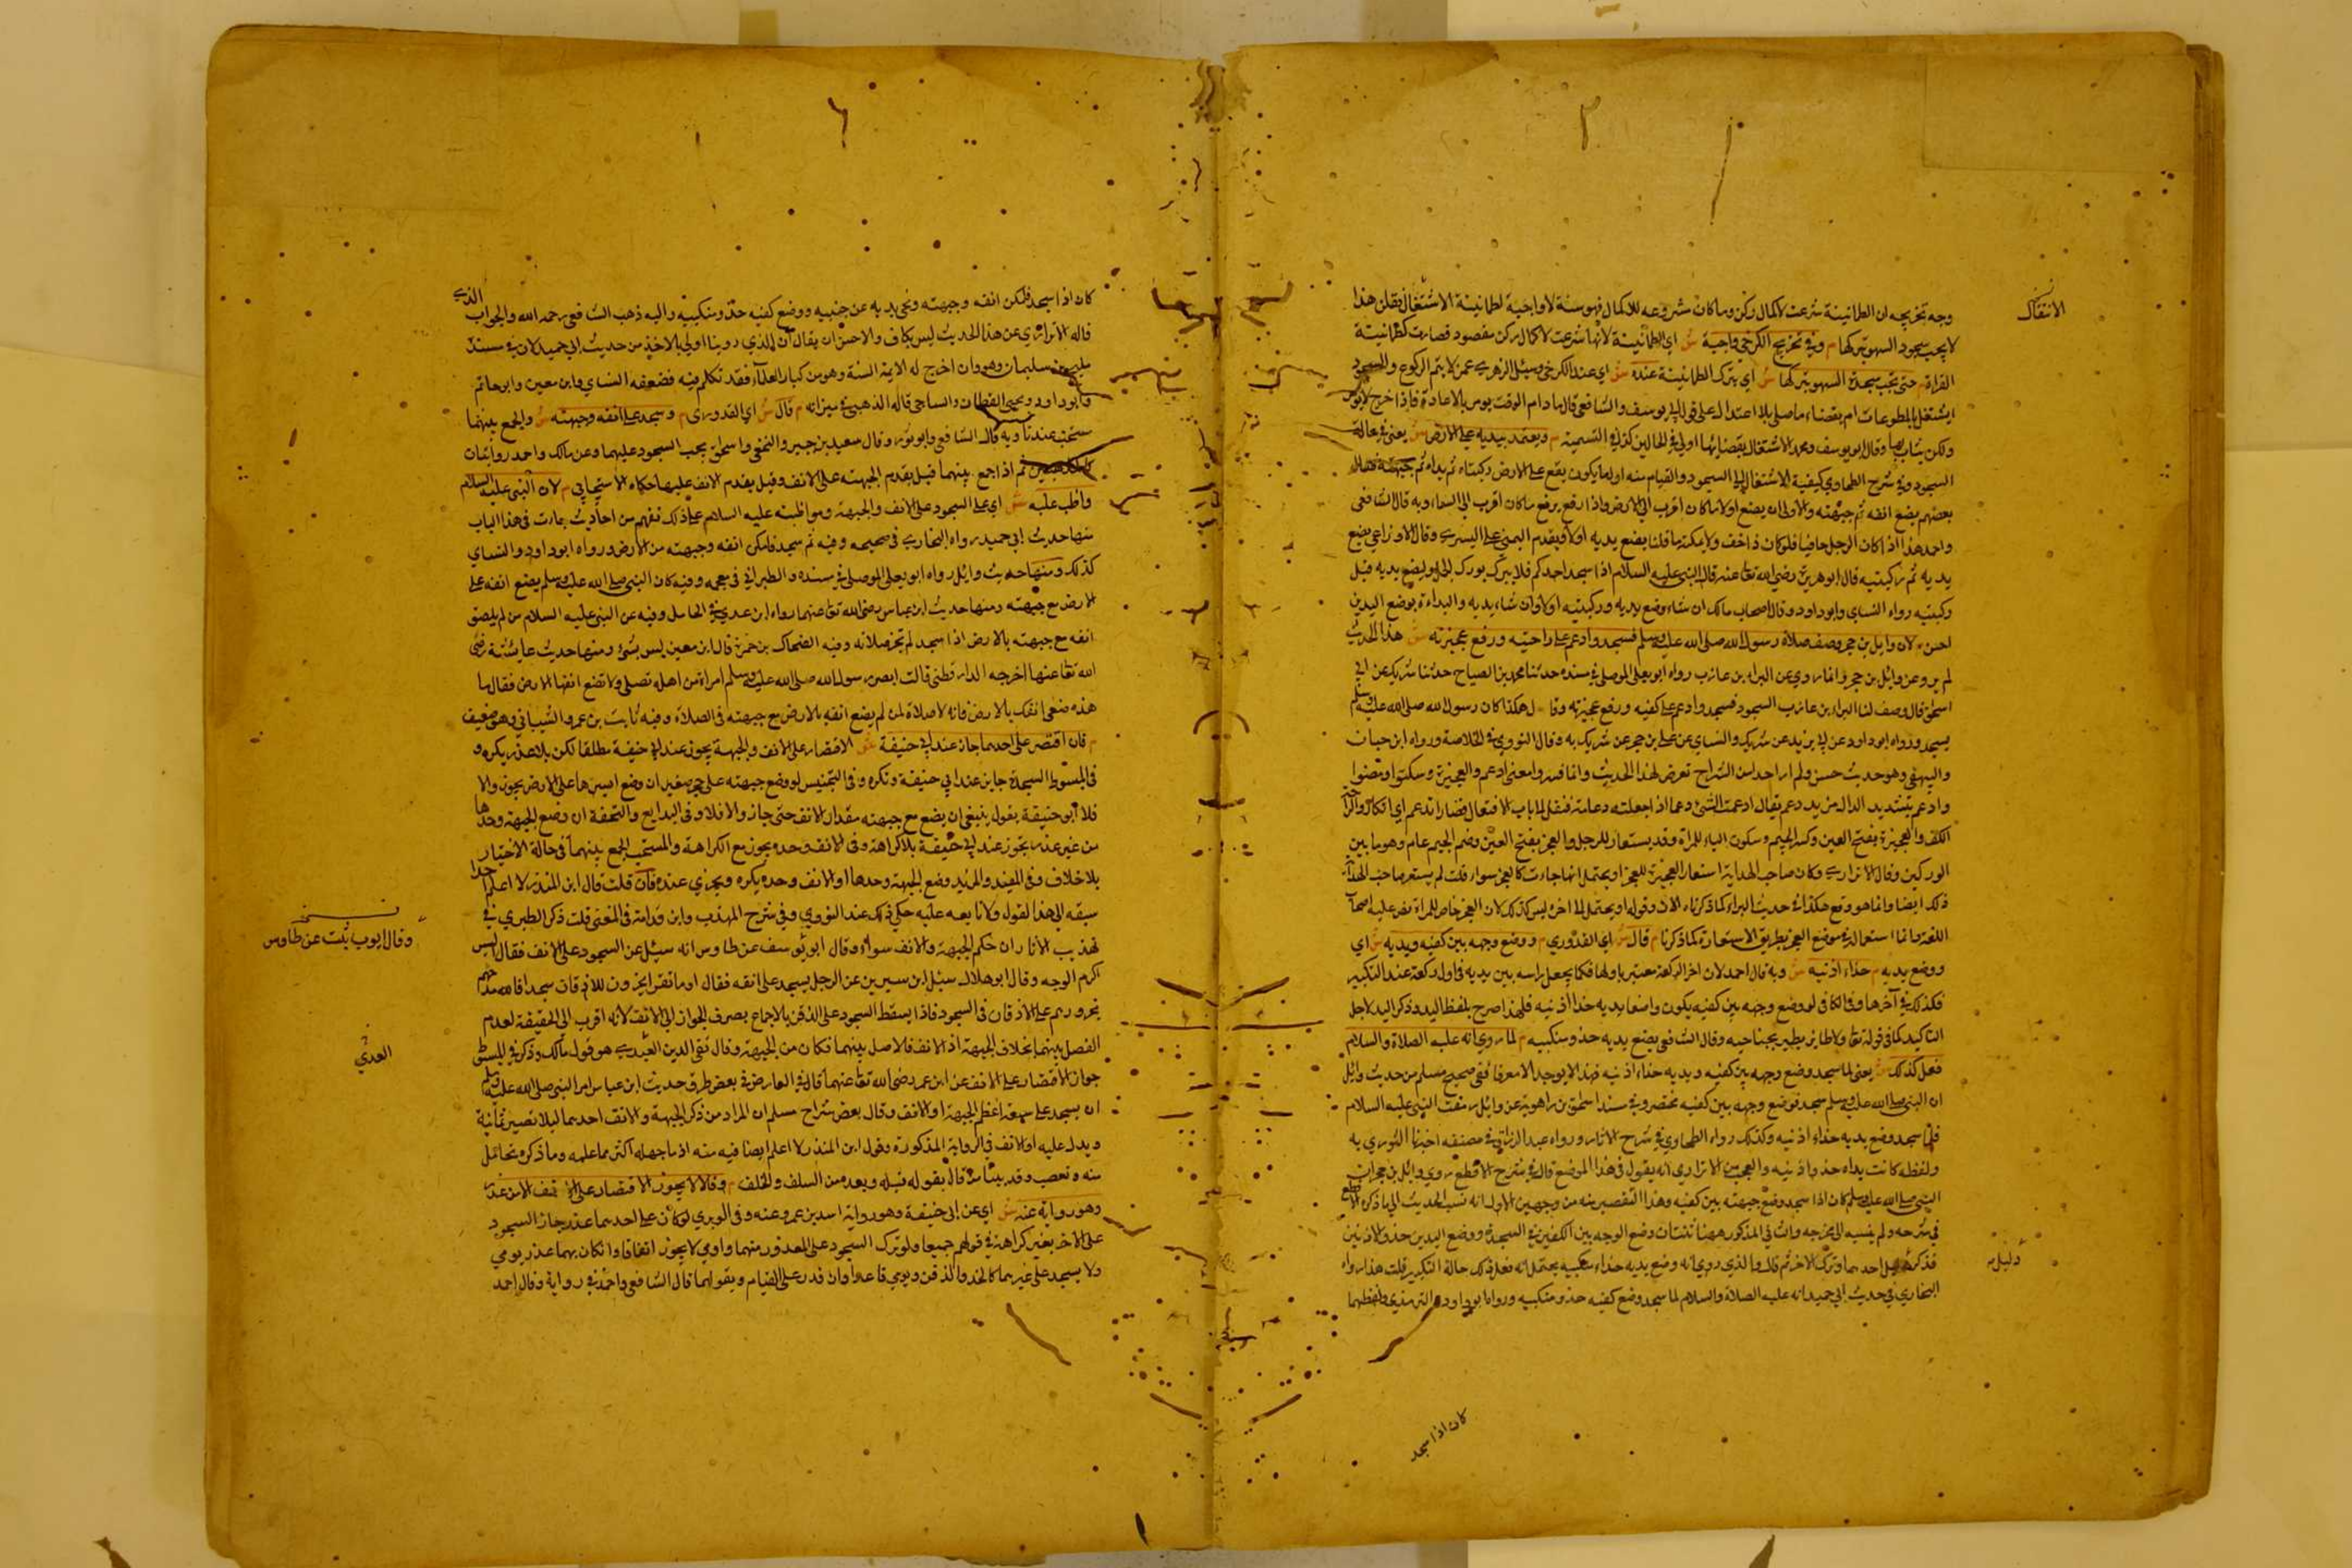 وجه تخريجه ان الطمانينة شرعت لاكمال ركن وما كان مشروعه للاكمال فهو سنة لا واجبة لطمانينة الانتقال فقلن هذا
لا يجب سجود السهو بتركها م وفي تخريج الكرخي واجبة ش اي الطمانينة لانها شرعت لاكمال ركن مقصود فصارت كطمانينة
القراة م حتى تجب سجدة السهو بتركها ش اي بترك الطمانينة عنده ش اي عند الكرخي وسئل الزهري عمن لا يتم الركوع والسجود
ولكن يثاب بها وقال ابو يوسف ومحمد الاشتغال بقضائها اولى في الحالين كذا في التسمية م ويعتمد بيديه على الارض ش يعني في حالة
السجود وفي شرح الطحاوي كيفية الاشتغال الى السجود والقيام منه اول ما يكون يقع على الارض ركبتاه ثم يداه ثم جبهته فقال
بعضهم يضع انفه ثم جبهته والاولى ان يضع اولا ما كان اقرب الى الارض واذا رفع يرفع ما كان اقرب الى السماء وبه قال الشافعي
واحمد هذا اذا كان الرجل حافيا فلو كان ذا خف ولا يمكنه ما قلنا يضع يديه اولا ويقدم اليمنى على اليسرى وقال الاوزاعي يضع
يديه ثم ركبتيه قال ابو هريرة رضي الله تعا عنه قال النبي عليه السلام اذا سجد احدكم فلا يبرك بروك الجمل وليضع يديه قبل
ركبتيه رواه النساي وابو داود وقال اصحاب مالك ان شاء وضع يديه وركبتيه اولا وان شاء يديه والبداءة بوضع اليدين
احسن م لان وايل بن حجر وصف صلاة رسول الله صلى الله عليه وسلم فسجد وادعم على راحتيه ورفع عجيزته ش هذا الحديث
لم يرو عن وايل بن حجر وانما روي عن البراء بن عازب رواه ابو يعلى الموصلي في مسنده حدثنا محمد بن الصباح حدثنا شريك عن ابي
اسحق قال وصف لنا البراء بن عازب السجود فسجد وادعم على كفيه ورفع عجيزته وقال هكذا كان رسول الله صلى الله عليه وسلم
يسجد ورواه ابو داود عن ابي يزيد عن شريك والنساي عن علي بن حجر عن شريك به وقال النووي في الخلاصة ورواه ابن حبان
والبيهقي وهو حديث حسن ولم ار احدا من الشراح تعرض لهذا الحديث وانما فسروا معنى ادعم والعجيزة وسكتوا ومضوا
وادعم بتشديد الدال من يدعم يقال ادعمت الشيء دعما اذا جعلته دعامة فنقل الى باب الافتعال فصار ادتعم اي اتكا والراحة
الكف والعجيزة بفتح العين وكسر الجيم وسكون الياء للمراة وقد يستعار للرجل والعجز بفتح العين وضم الجيم عام وهو ما بين
الوركين وقال الاترازي وكان صاحب الهداية استعار العجيزة للعجز او يحتمل انها جاءت كالعجز سواء قلت لم يستعر صاحب الهداية
ذلك ايضا وانما هو وقع هكذا في حديث البراء كما ذكرناه الان وقوله او يحتمل الى اخره ليس كذلك لان العجز خاص للمراة نص عليه اصحاب
اللغة وانما استعماله في موضع العجز بطريق الاستعارة كما ذكرنا م قال ش اي القدوري م ووضع وجهه بين كفيه ويديه ش اي
ووضع يديه م حذاء اذنيه ش وبه قال احمد لان اخر الركعة معتبر باولها فكما يجعل راسه بين يديه في اول ركعة عند التكبير
فكذلك في آخرها وفي الكافي لو وضع وجهه بين كفيه يكون واضعا يديه حذا اذنيه فلهذا صرح بلفظ اليد وذكر اليد لاجل
التاكيد كما في قوله تعا ولا طاير يطير بجناحيه وقال الشافعي يضع يديه حذو منكبيه م لما روي انه عليه الصلاة والسلام
فعل كذلك ش يعني لما سجد وضع وجهه بين كفيه ويديه حذاء اذنيه هذا لا يوجد الا مفرقا ففي صحيح مسلم من حديث وايل
ان النبي صلى الله عليه وسلم سجد فوضع وجهه بين كفيه مختصر وفي مسند اسحق بن راهوية عن وايل رمقت النبي عليه السلام
فلما سجد وضع يديه حذاء اذنيه وكذلك رواه الطحاوي في شرح الاثار ورواه عبد الرزاق في مصنفه اخبرنا الثوري به
ولفظه كانت يداه حذو اذنيه والعجب من الاترازي انه يقول في هذا الموضع قال في شرح الاقطع روي وايل بن حجر ان
النبي صلى الله عليه وسلم كان اذا سجد وضع جبهته بين كفيه وهذا التقصير منه من وجهين الاول انه نسب الحديث الى ما ذكره الاقطع
في شرحه ولم ينسبه الى مخرجه والثاني المذكور ههنا شئان وضع الوجه بين الكفين في السجدة ووضع اليدين حذو الاذنين
فذكر احدهما وترك الاخر ثم قال والذي روي انه وضع يديه حذاء منكبيه يحتمل انه فعل ذلك حالة التكبير قلت هذا رواه
البخاري في حديث ابي حميد انه عليه الصلاة والسلام لما سجد وضع كفيه حذو منكبيه ورواه ابو داود والترمذي ولفظهما
الانتقال
دليل
كان اذا سجد
كان اذا سجد مكن انفه وجبهته ونحى يديه عن جنبيه ووضع كفيه حذو منكبيه واليه ذهب الشافعي رحمه الله والجواب الذي
قاله الاترازي عن هذا الحديث ليس بكاف والاحسن ان يقال ان الذي روينا اولى بالاخذ من حديث ابي حميد لان في سنده
فليح بن سليمان وهو وان اخرج له الايمة الستة وهو من كبار العلماء فقد تكلم فيه فضعفه النساي وابن معين وابو حاتم
وابو داود ويحيى القطان والساجي قاله الذهبي في ميزانه م قال ش اي القدوري م وسجد على انفه وجبهته ش والجمع بينهما
مستحب عندنا وبه قال الشافعي وابو ثور وقال سعيد بن جبير والنخعي واسحق يجب السجود عليهما وعن مالك واحمد روايتان
ثم اذا جمع بينهما قيل يقدم الجبهته على الانف وقيل يقدم الانف عليها حكاه الاسبيجابي م لان النبي عليه السلام
واظب عليه ش اي على السجود على الانف والجبهة ومواظبته عليه السلام على ذلك تفهم من احاديث جاءت في هذا الباب
منها حديث ابي حميد رواه البخاري في صحيحه وفيه ثم سجد فامكن انفه وجبهته من الارض ورواه ابو داود والنساي
كذلك ومنها حديث وايل رواه ابو يعلى الموصلي في مسنده والطبراني في معجمه وفيه كان النبي صلى الله عليه وسلم يضع انفه على
الارض مع جبهته ومنها حديث ابن عباس رضي الله تعا عنهما رواه ابن عدي في الكامل وفيه عن النبي عليه السلام من لم يلصق
انفه مع جبهته بالارض اذا سجد لم تجز صلاته وفيه الضحاك بن حمزة قال ابن معين ليس بشيء ومنها حديث عايشة رضي
الله تعا عنها اخرجه الدار قطني قالت ابصر رسول الله صلى الله عليه وسلم امراة من اهله تصلي ولا تضع انفها الارض فقال يا
هذه ضعي انفك بالارض فانه لا صلاة لمن لم يضع انفه بالارض مع جبهته في الصلاة وفيه ثابت بن عمرو الشيباني وهو ضعيف
م فان اقتصر على احدهما جاز عند ابي حنيفة ش الاقتصار على الانف والجبهة يجوز عند ابي حنيفة مطلقا لكن بلا عذر يكره و
في المبسوط السجدة جايز عند ابي حنيفة وتكره وفي التجنيس لو وضع جبهته على حجر صغير ان وضع اكثرها على الارض يجوز والا
فلا ابو حنيفة يقول ينبغي ان يضع مع جبهته مقدار الانف حتى جاز والا فلا وفي البدايع والتحفة ان وضع الجبهة وحدها
من غير عذر يجوز عند ابي حنيفة بلا كراهة وفي الانف وحده يجوز مع الكراهة والمستحب الجمع بينهما في حالة الاختيار
بلا خلاف وفي المفيد والمزيد وضع الجبهة وحدها او الانف وحده يكره ويجزي عنده فان قلت قال ابن المنذر لا اعلم احدا
سبقه الى هذا القول ولا تابعه عليه حكي ذلك عند النووي وفي شرح المهذب وابن قدامة في المغني قلت ذكر الطبري في
تهذيب الاثار ان حكم الجبهة والانف سواء وقال ابو يوسف عن طاوس انه سئل عن السجود على الانف فقال اليس
اكرم الوجه وقال ابو هلال سئل ابن سيرين عن الرجل يسجد على انفه فقال اوما تقرا يخرون للاذقان سجدا فالله مدحهم
بخرورهم على الاذقان في السجود فاذا يسقط السجود على الذقن بالاجماع يصرف الجواز الى الانف لانه اقرب الى الحقيقة لعدم
الفصل بينهما بخلاف الجبهة اذ الانف فاصل بينهما فكان من الجبهة وقال تقي الدين العبدري هو قول مالك وذكر في المبسوط
جواز الاقتصار على الانف عن ابن عمر رضي الله تعا عنهما قال في العارض في بعض طرق حديث ابن عباس امر النبي صلى الله عليه وسلم
ان يسجد على سبعة اعظم الجبهة او الانف وقال بعض شراح مسلم ان المراد من ذكر الجبهة والانف احدهما ليلا تصير ثمانية
ويدل عليه او الانف في الرواية المذكورة وقول ابن المنذر لا اعلم ايضا فيه منه اذ ما جهله اكثر مما علمه وما ذكره تحامل
منه وتعصب وقد بينا من قال بقوله قبله وبعده من السلف والخلف م وقالا لا يجوز الاقتصار على الانف الا من عذر
وهو رواية عنه ش اي عن ابي حنيفة وهو رواية اسد بن عمرو عنه وفي الوبري لو كان على احدهما عذر جاز السجود
على الاخر بغير كراهة في قولهم جميعا ولو ترك السجود على المعذور منهما واومى لا يجوز اتفاقا وان كان بهما عذر يومي
ولا يسجد على غيرهما كالخد والذقن ويومي قاعدا وان قدر على القيام وبقولهما قال الشافعي واحمد في رواية وقال احمد
وقال ايوب نبئت عن طاوس
العبدي